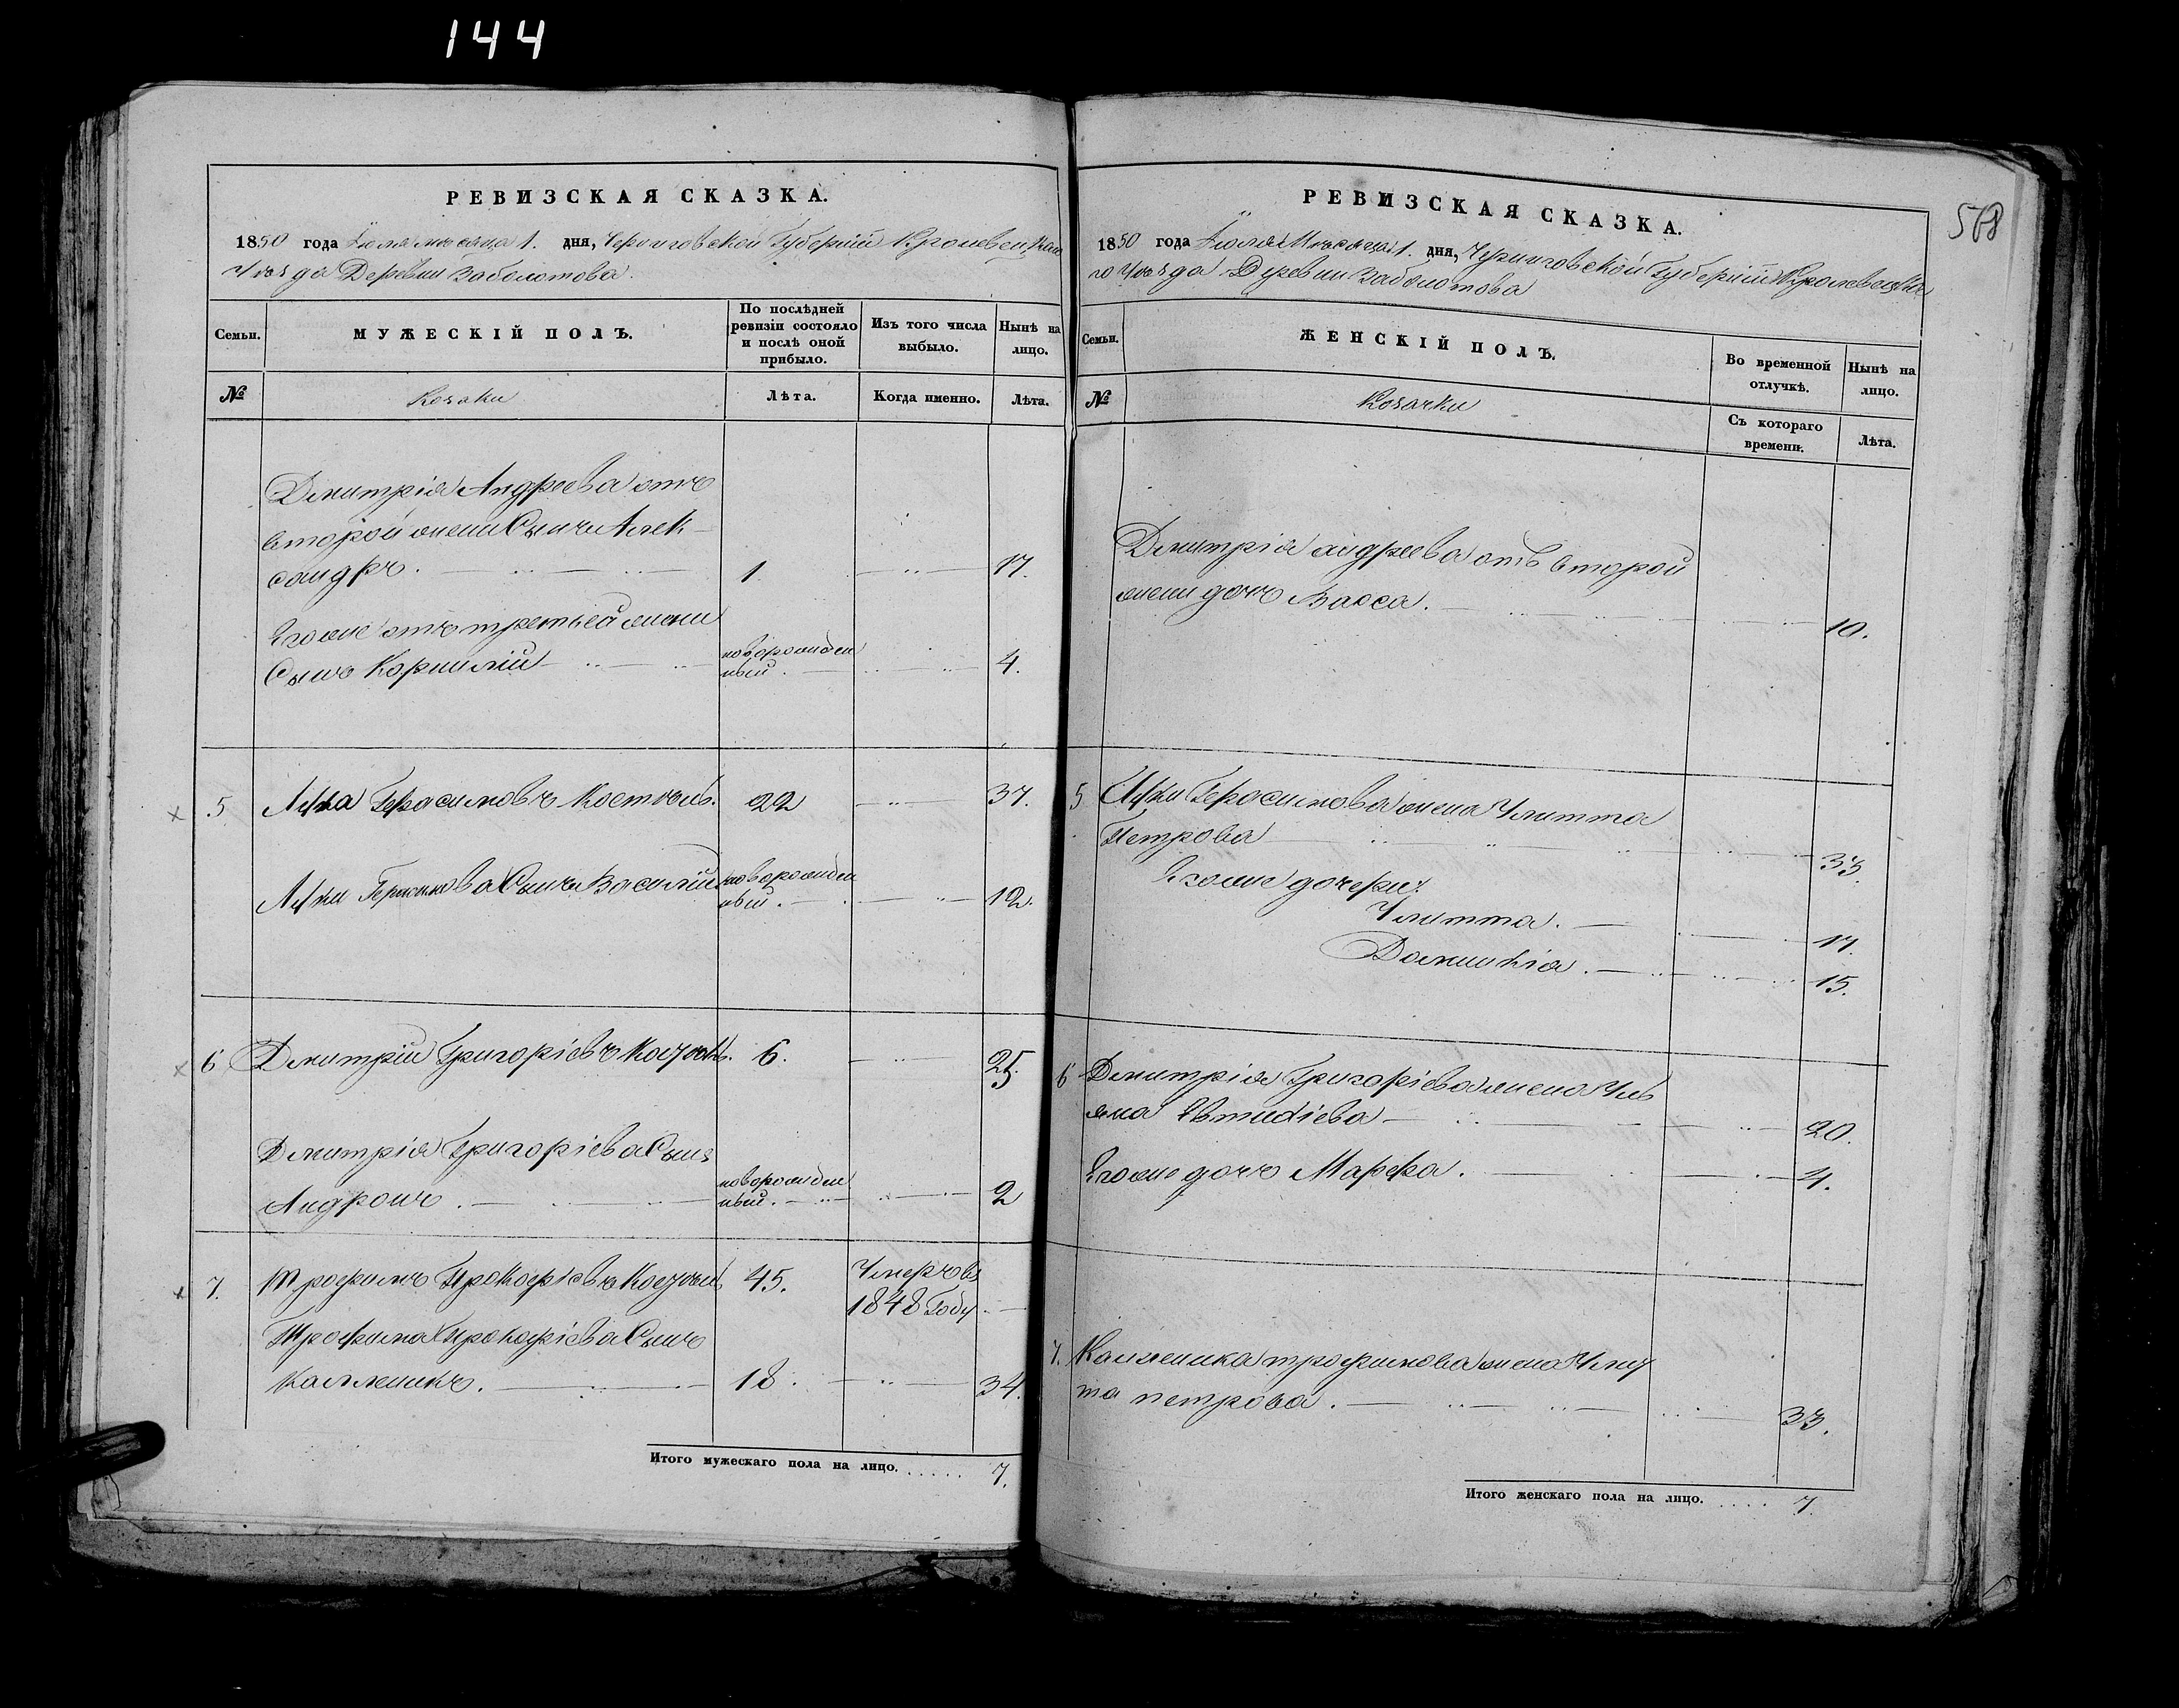 144
РЕВИЗСКАЯ СКАЗКА.
1850 года Іюля мѣсяца 1. дня, Черниговской Губерніи Кролевецкаго
Уѣзда Деревни Заболотова.
Семьи.
МУЖЕСКІЙ ПОЛЪ.
По послѣдней
ревизіи состояло
и послѣ оной
прибыло.
Изъ того числа
выбыло.
Нынѣ на
лицо.
№
Козаки
Лѣта.
Когда именно.
Лѣта.
Дмитрія Андреева отъ
второй жени Сынъ Алек-
сандръ. 1. 17.
Егоже отъ третьей жени
Сынъ Корнилій новорожден
ный. 4.
5 Лука Герасимовъ 22 37.
Луки Герасимова Сынъ Василій новорожден
ный. 12.
6 Дмитрій Григоріевъ 6. 25.
Дмитрія Григоріева Сынъ
Андронъ. новорожден
ный. 2
7. Трофимъ Прокофіевъ 45. Умеръ въ
1848 Году.
Трофима Прокофіева Сынъ
Калленикъ. 18. 34.
Итого мужескаго пола на лицо. 7.
568
РЕВИЗСКАЯ СКАЗКА.
1850 года Іюля Мѣсяца 1. дня, Черниговской Губерніи Кролевецка
го Уѣзда Деревни Заболотова
Семьи.
ЖЕНСКІЙ ПОЛЪ.
Во временной
отлучкѣ.
Нынѣ на
лицо.
№
Козачки
Съ котораго
времени.
Лѣта.
Дмитрія андреева отъ второй
жени дочь Васса. 10.
5 Луки Герасимова жена Улитта
Петрова 33.
Егоже дочери:
Улитта. 17.
Домникія. 15.
6 Дмитрія Григоріева жена Улья
на Евтихіева 20.
Егоже дочь Марфа. 4.
7. Калленика трофимова жена
та петрова. 33.
Итого женскаго пола на лицо. 7.